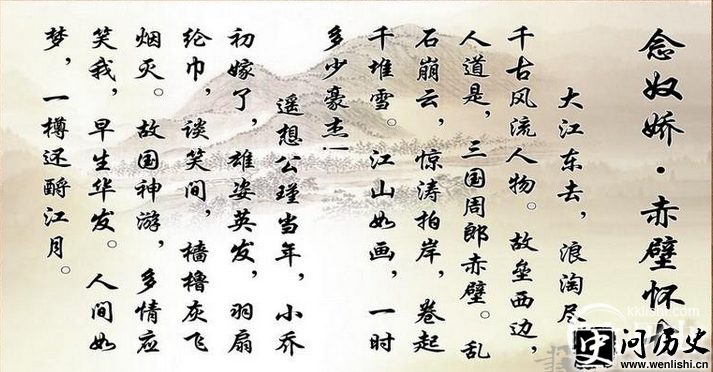 念奴娇·赤壁怀古
大江东去，浪淘尽
千古风流人物。故垒西边，
人道是，三国周郎赤壁。乱
石崩云，惊涛拍岸，卷起
千堆雪。江山如画，一时
多少豪杰！
遥想公瑾当年，小乔
初嫁了，雄姿英发，羽扇
纶巾，谈笑间，樯橹灰飞
烟灭。故国神游，多情应
笑我，早生华发。人间如
梦，一樽还酹江月。
kklishi.com
史问历史
www.wenlishi.cn